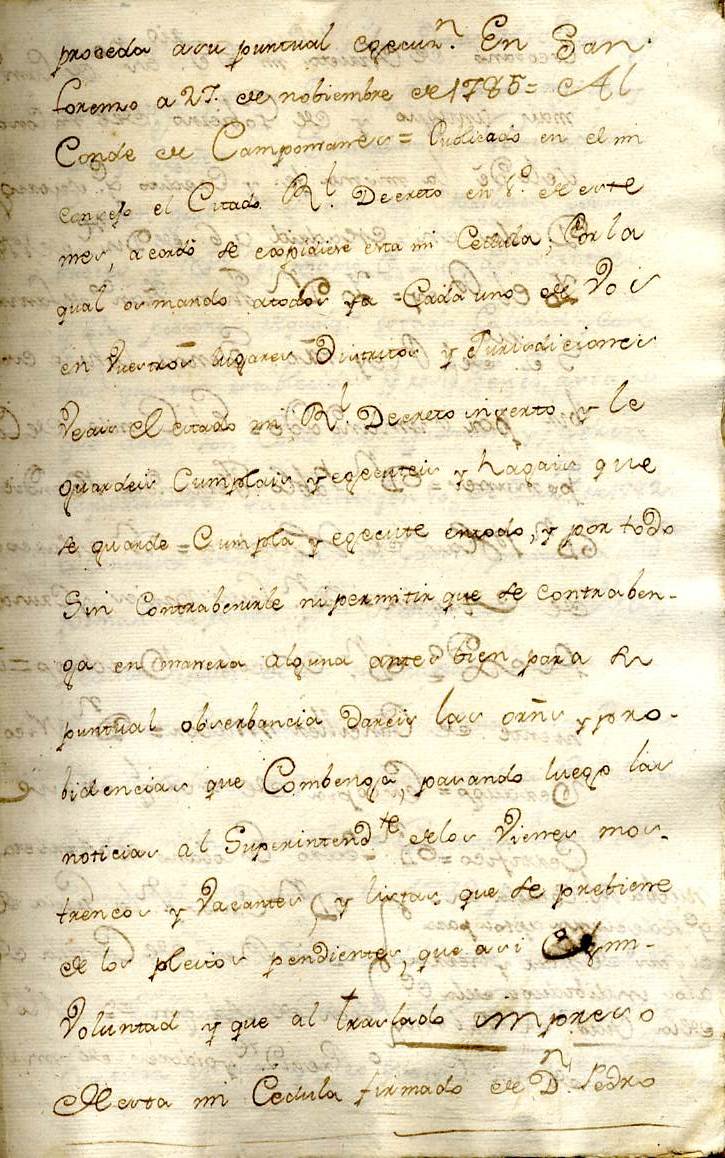 proceda a su puntual egecun.n En San
Lorenzo a 27. de nobiembre de 1785 = Al
Conde de Campomanes = Publicado en el mi
consejo el Citado R.l Decreto en 1.o de este
mes, acordó se expidiese esta mi Cedula; Por la
qual os mando a todos y a Cada uno de Vos
en Vuestros lugares Distritos y Jurisdiciones
Veais el citado mi R.l Decreto inserto, y le
guardeis Cumplais y egecuteis y hagais que
se guarde Cumpla y egecute entodo, y por todo
Sin Contrabenirle ni permitir que se contraben-
ga en manera alguna antes bien para su
puntual obserbancia Dareis las orns y pro-
bidencias que Combenga, pasando luego las
noticias al Superintend.te de los Vienes mos-
trencos y Vacantes, y listas que se prebiene
de los pleitos pendientes, que asi es mi
Voluntad y que al traslado impreso
de esta mi Cedula firmado de D.n Pedro